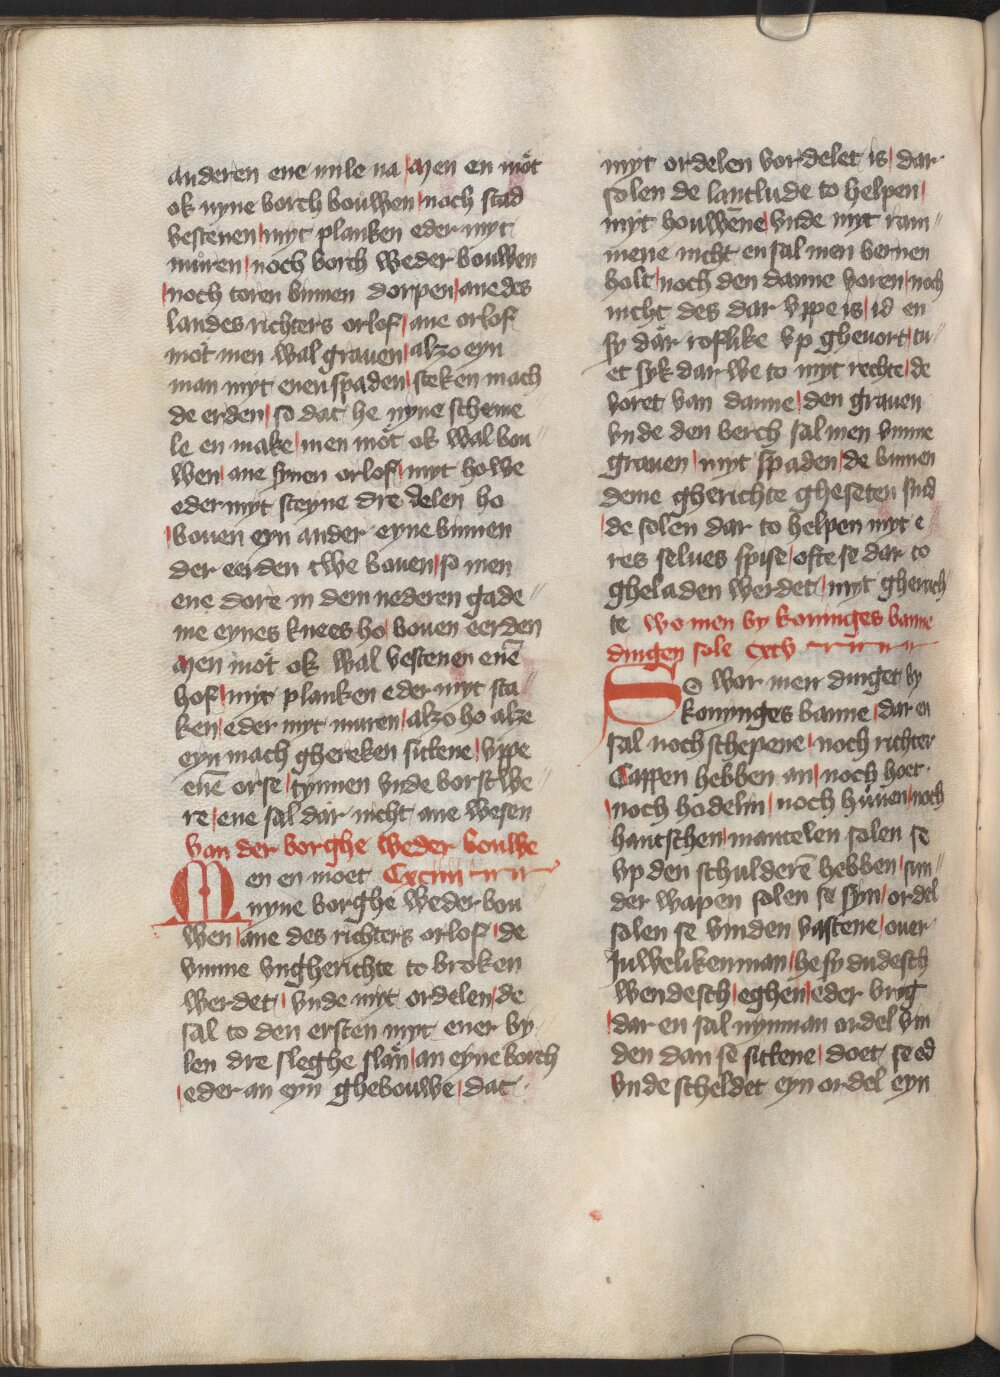 anderen ene mile na men en môt
ok nyne borch bouwen noch stad
vestenen myt planken eder myt
muren noch borch weder bouwen
noch toren binnen dorpen ane des
landes richters orlof ane orlof
môt men wal grauen alzo eyn
man myt enen spaden steken mach
de erden so dat he nyne scheme
le en make men môt ok wal bou
wen ane synen orlof myt holte
eder myt steyne dre delen ho
bouen eyn ander eyne binnen
der eerden twe bouen so men
ene dore in dem nederen gade
me eynes knees ho bouen eerden
Men môt ok wal vestenen enē
hof myt planken eder myt sta
ken eder myt muren alzo ho alze
eyn mach ghereken sittene vppe
enē orse tynnen vnde borstwe
re ene sal dâr nicht ane wesen
Van der borghe weder bouwe
Men en moet Cxciiii
nyne borghe weder bou
wen ane des richters orlof de
vmme vngherichte to broken
werdet vnde myt ordelen de
sal to den ersten myt ener by
len dre sleghe slân an eyne borch
eder an eyn ghebouwe dat
myt ordelen vordelet is dar
solen de lantlude to helpen
myt houwēne vnde myt ram
mene nicht en sal men bernen
holt noch den danne voren noch
nicht des dar vppe is id en
sy dâr roflike vp gheuort tu
et syk dar we to myt rechte de
voret van danne den grauen
vnde den berch sal men vmme
grauen myt spaden de binnen
deme gherichte gheseten sind
de solen dar to helpen myt e
res selues spise ofte se dar to
gheladen werdet myt gheruch
te wo men by koninges banne
dingen sole cxcv
So wor men dinget by
konynges banne dar en
sal noch schepene noch richter
Cappen hebben an noch hoet
noch hodelin noch hüuen noch
hantschen mantelen solen se
vp den schulderē hebben sun
der wapen solen se syn ordel
solen se vinden vastene ouer
Juwelikenman he sy dudesch
wendesch eghen eder vrig
dar en sal nynman ordel vin
den dan se sittene doet se ed
vnde scheldet eyn ordel eyn